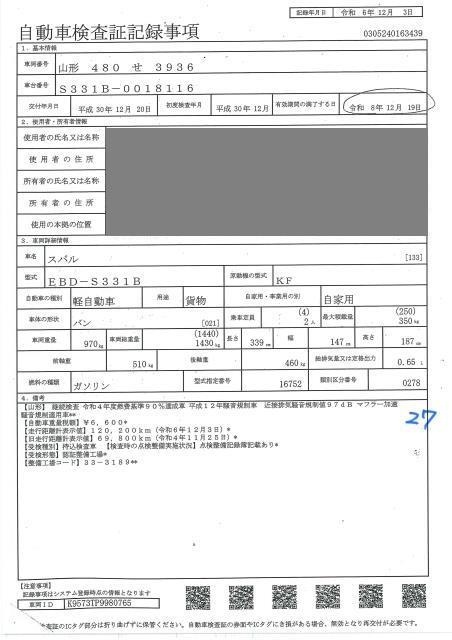 記録年月日 令和 6年12月 3日
自動車検査証記録事項
0305240163439
1．基本情報
車両番号 山形 480 せ 3936
車台番号 S331B-0018116
交付年月日 平成30年12月 20日 初度検査年月 平成30年12月 有効期間の満了する日 令和 8年12月 19日
2．使用者・所有者情報
使用者の氏名又は名称
使用者の住所
所有者の氏名又は名称
所有者の住所
使用の本拠の位置
3．車両詳細情報
車名 スバル [133]
型式 EBD-S331B 原動機の型式 KF
自動車の種別 軽自動車 用途 貨物 自家用・事業用の別 自家用
車体の形状 バン [021] 乗車定員 (4) 2人 最大積載量 (250) 350kg
車両重量 970kg 車両総重量 (1440) 1430kg 長さ 339cm 幅 147cm 高さ 187cm
前軸重 510kg 後軸重 460kg 総排気量又は定格出力 0.65 L
燃料の種類 ガソリン 型式指定番号 16752 類別区分番号 0278
4．備考
【山形】 継続検査 令和4年度燃費基準90%達成車 平成12年騒音規制車 近接排気騒音規制値97dB マフラー加速
騒音規制適用車**
【自動車重量税額】¥6,600*
【走行距離計表示値】120,200km（令和6年12月3日）*
【旧走行距離計表示値】69,800km（令和4年11月25日）*
【受検種別】持込検査車 【検査時の点検整備実施状況】点検整備記録簿記載あり*
【受検形態】認証整備工場*
【整備工場コード】33-3189**
27
【注意事項】
記録事項はシステム登録時点の情報となります
車両ID K9573TP9980765
検査証のICタグ部分は折り曲げずに保管ください。自動車検査証の券面やICタグにき損がある場合、無効となり再交付が必要です。